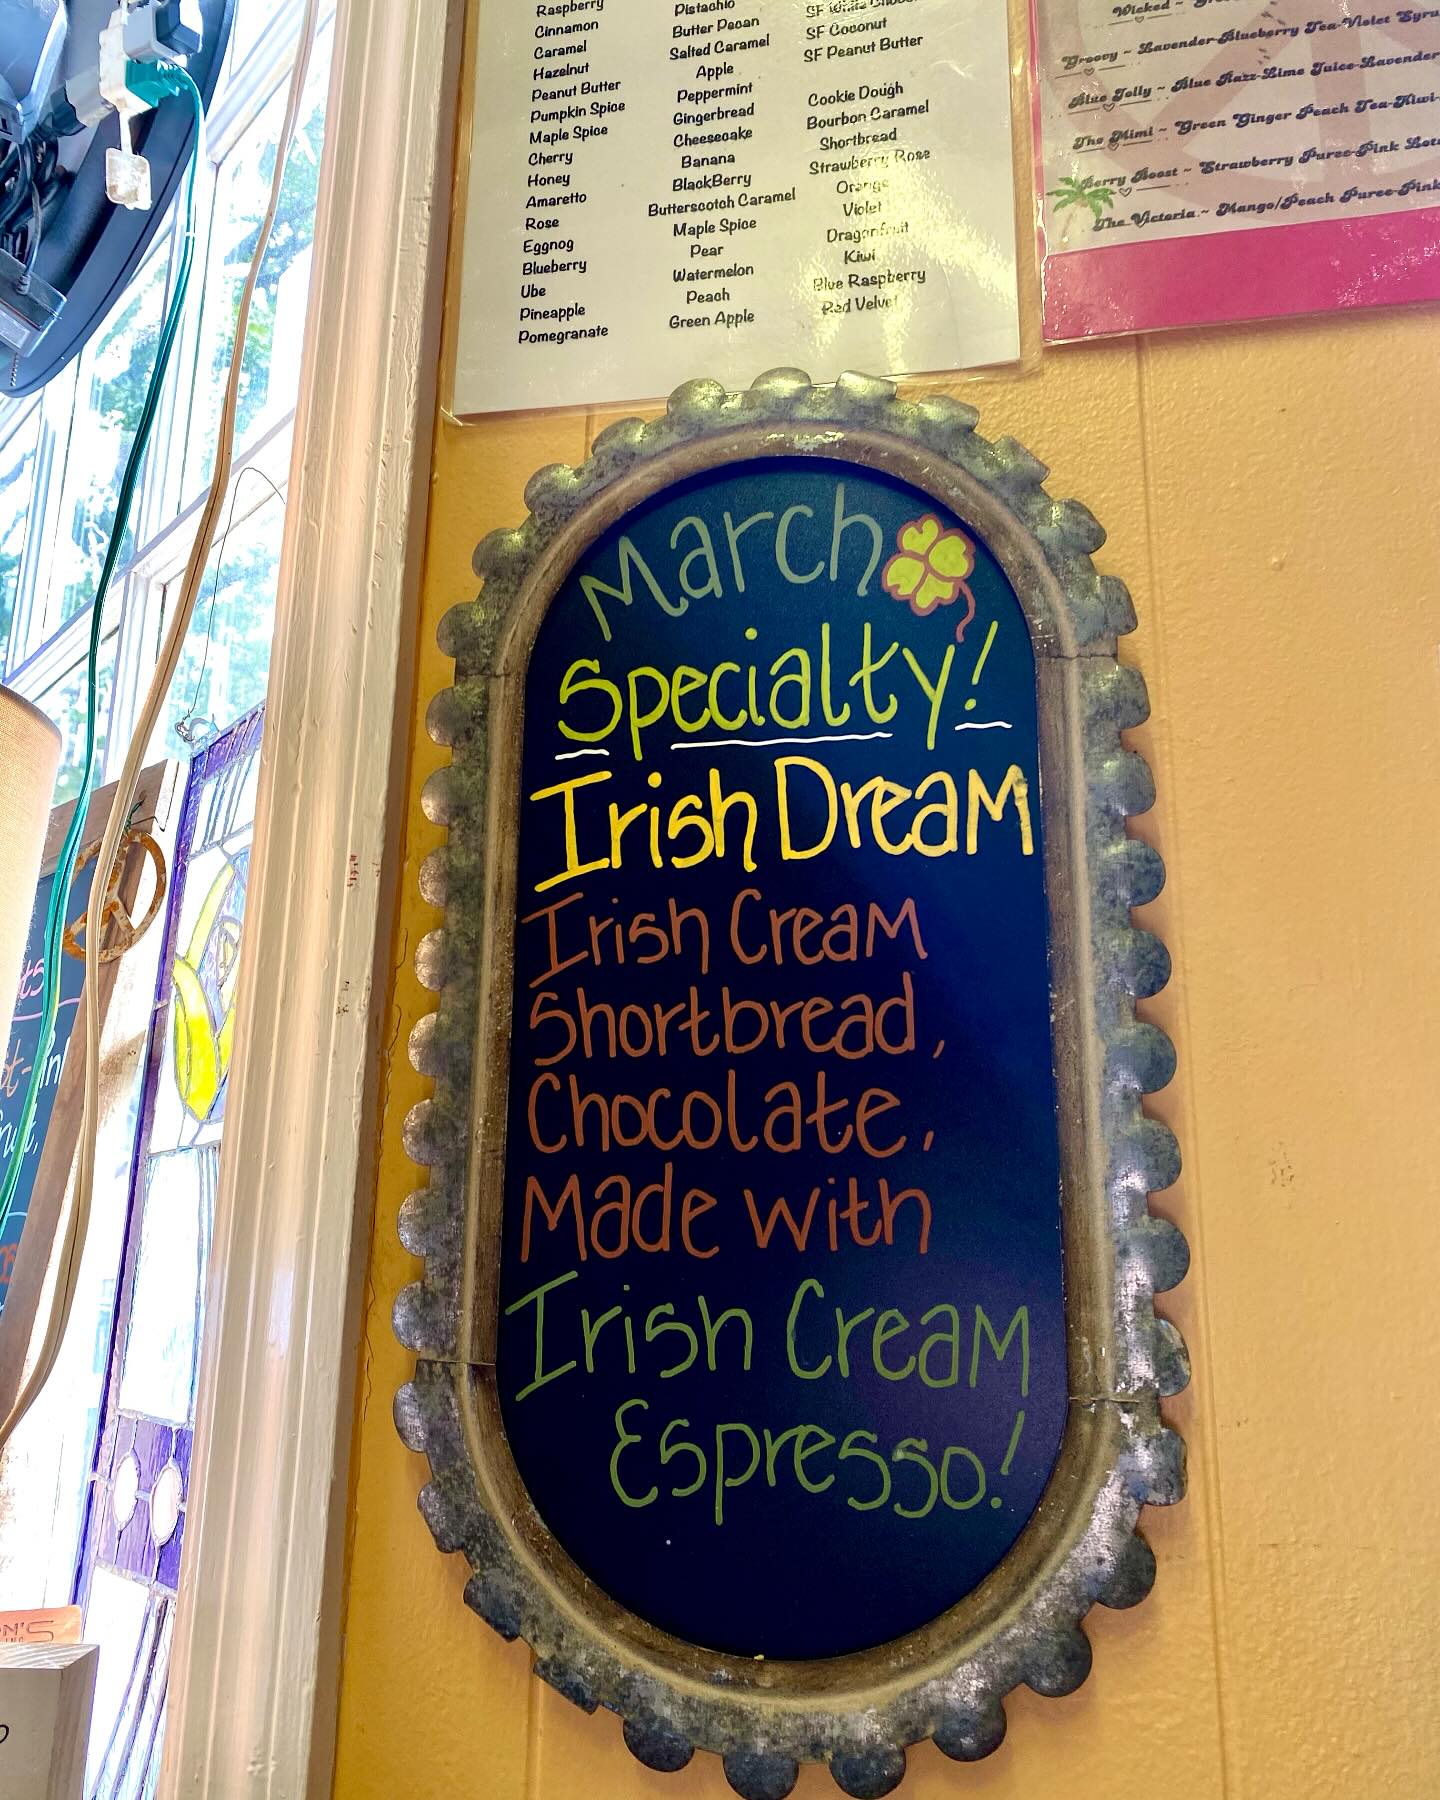 Raspberry
Cinnamon
Caramel
Hazelnut
Peanut Butter
Pumpkin Spice
Maple Spice
Cherry
Honey
Amaretto
Rose
Eggnog
Blueberry
Ube
Pineapple
Pomegranate
Pistachio
Butter Pecan
Salted Caramel
Apple
Peppermint
Gingerbread
Cheesecake
Banana
BlackBerry
Butterscotch Caramel
Maple Spice
Pear
Watermelon
Peach
Green Apple
SF White
SF Coconut
SF Peanut Butter
Cookie Dough
Bourbon Caramel
Shortbread
Strawberry Rose
Orange
Violet
Dragonfruit
Kiwi
Blue Raspberry
Red Velvet
Wicked ~
Groovy ~ Lavender-Blueberry Tea-Violet Syru
Blue Jolly ~ Blue Razz-Lime Juice-Lavender
The Mimi ~ Green Ginger Peach Tea-Kiwi-
Berry Boost ~ Strawberry Puree-Pink Lot
The Victoria ~ Mango/Peach Puree-Pink
March
Specialty!
Irish Dream
Irish Cream
Shortbread,
Chocolate,
Made with
Irish Cream
Espresso!
ON'S